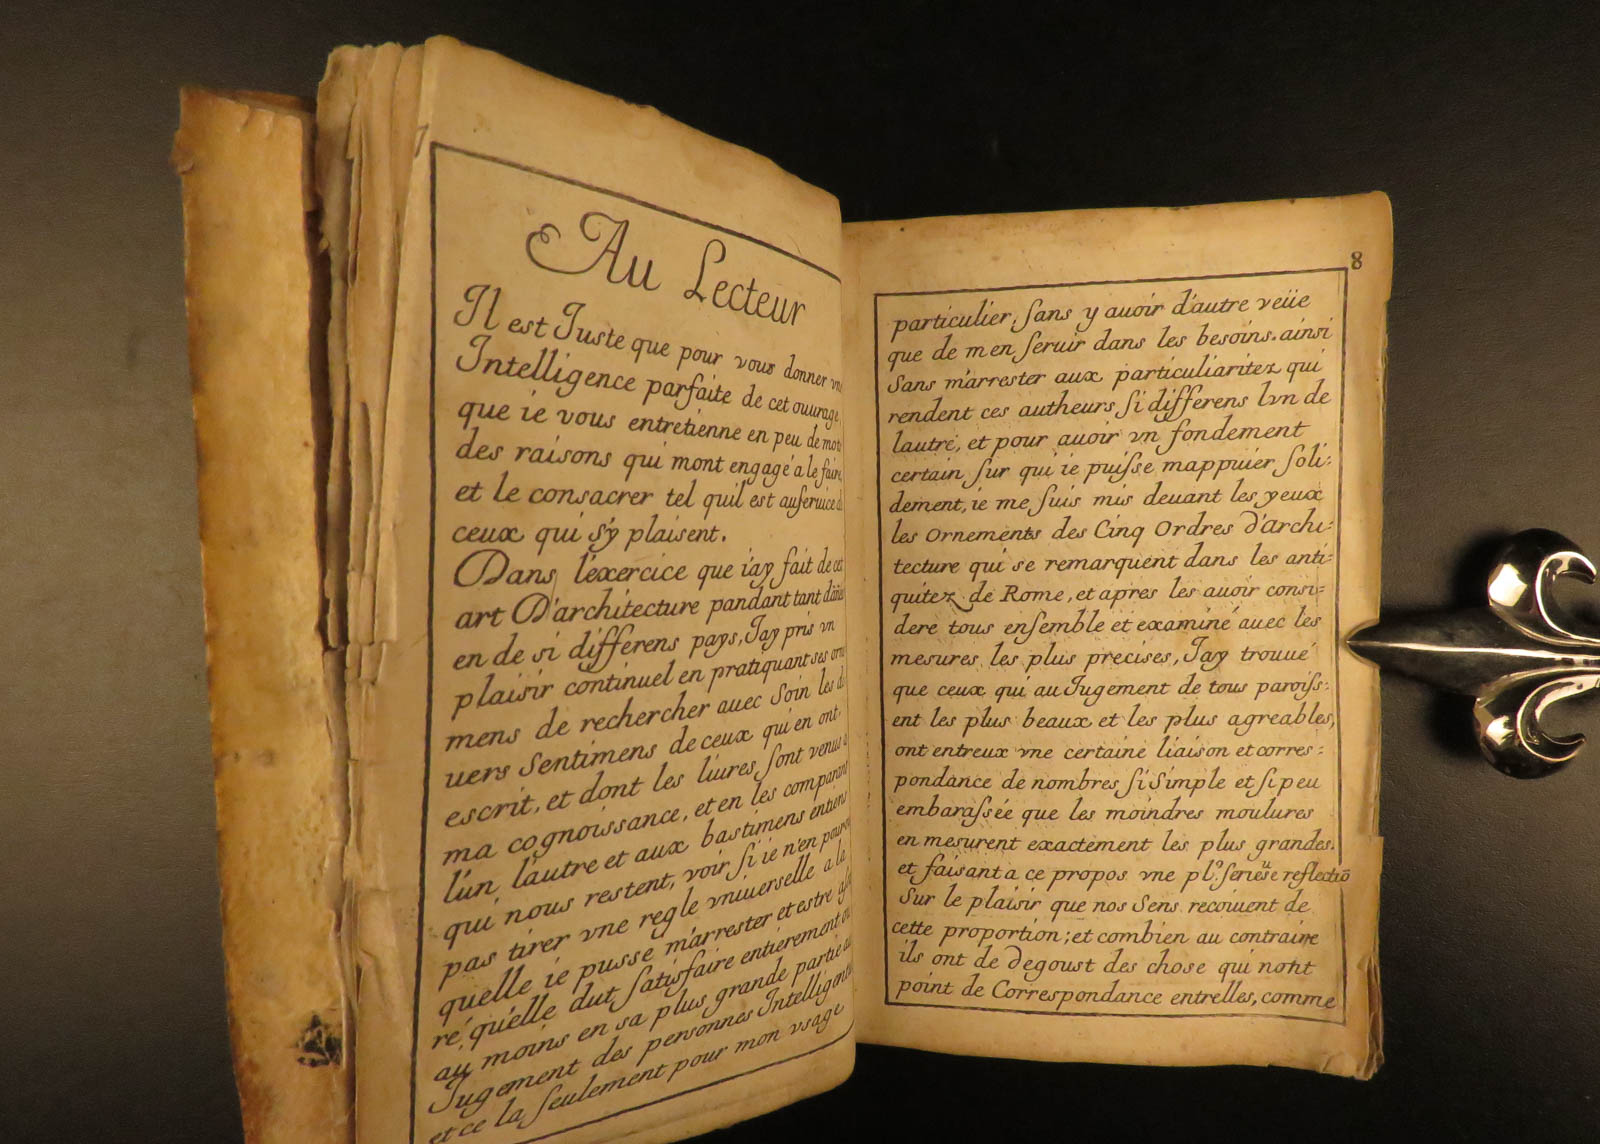 7
Au Lecteur
Il est Juste que pour vous donner vn
Intelligence parfaite de cet ouurage,
que ie vous entretienne en peu de mots
des raisons qui mont engagé a le faire,
et le consacrer tel quil est au seruice d
ceux qui s'y plaisent.
Dans l'exercice que i'ay fait de cet
art D'architecture pandant tant d'année
en de si differens pays, Jay pris vn
plaisir continuel en pratiquant ses orne
mens de rechercher auec soin les di
uers sentimens de ceux qui en ont
escrit, et dont les liures sont venus a
ma cognoissance, et en les comparant
l'un l'autre et aux bastimens entiens
qui nous restent, voir si ie n'en pouro
pas tirer vne regle vniuerselle a la
quelle ie pusse m'arrester et estre
ré, qu'elle dut satisfaire entierement ou
au moins en sa plus grande partie au
Jugement des personnes Intelligentes
et ce la seulement pour mon vsage
8
particulier, sans y auoir d'autre veüe
que de men seruir dans les besoins. ainsi
sans m'arrester aux particuliaritez qui
rendent ces autheurs si differens lvn de
lautre, et pour auoir vn fondement
certain sur qui ie puisse mappuier soli:
dement, ie me suis mis deuant les yeux
les Ornements des Cinq Ordres d'archi:
tecture qui se remarquent dans les anti:
quitez de Rome, et apres les auoir consi:
dere tous ensemble et examiné auec les
mesures les plus precises, Jay trouué
que ceux qui au Jugement de tous paroiss:
ent les plus beaux et les plus agreables,
ont entreux vne certaine liaison et corres:
pondance de nombres si simple et si peu
embarassée que les moindres moulures
en mesurent exactement les plus grandes.
et faisant a ce propos vne pl.º serieuse reflectiõ
sur le plaisir que nos sens recoiuent de
cette proportion; et combien au contraire
ils ont de degoust des chose qui nont
point de Correspondance entrelles, comme